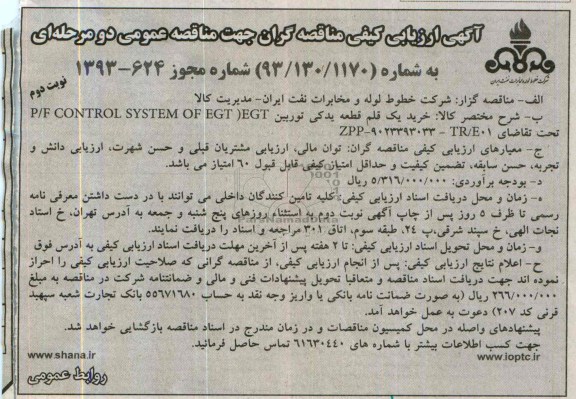 آگهی ارزیابی کیفی مناقصه گران جهت مناقصه عمومی دو مرحله‌ای
به شماره (۹۳/۱۳۰/۱۱۷۰) شماره مجوز ۶۲۴-۱۳۹۳
نوبت دوم
الف- مناقصه گزار: شرکت خطوط لوله و مخابرات نفت ایران- مدیریت کالا
ب- شرح مختصر کالا: خرید یک قلم قطعه یدکی توربین P/F CONTROL SYSTEM OF EGT )EGT
تحت تقاضای ZPP-۹۰۲۳۳۹۳۰۳۳ - TR/E۰۱
ج- معیارهای ارزیابی کیفی مناقصه گران: توان مالی، ارزیابی مشتریان قبلی و حسن شهرت، ارزیابی دانش و
تجربه، حسن سابقه، تضمین کیفیت و حداقل امتیاز کیفی قابل قبول ۶۰ امتیاز می باشد.
د- بودجه برآوردی: ۵/۳۱۶/۰۰۰/۰۰۰ ریال
ه- زمان و محل دریافت اسناد ارزیابی کیفی: کلیه تامین کنندگان داخلی می توانند با در دست داشتن معرفی نامه
رسمی تا ظرف ۵ روز پس از چاپ آگهی نوبت دوم به استثناء روزهای پنج شنبه و جمعه به آدرس تهران، خ استاد
نجات الهی، خ سپند شرقی،پ ۲۴، طبقه سوم، اتاق ۳۰۱ مراجعه و اسناد را دریافت نمایند.
و- زمان و محل تحویل اسناد ارزیابی کیفی: تا ۲ هفته پس از آخرین مهلت دریافت اسناد ارزیابی کیفی به آدرس فوق
ح- اعلام نتایج ارزیابی کیفی: پس از انجام ارزیابی کیفی، از مناقصه گرانی که صلاحیت ارزیابی کیفی را احراز
نموده اند جهت دریافت اسناد مناقصه و متعاقبا تحویل پیشنهادات فنی و مالی و ضمانتنامه شرکت در مناقصه به مبلغ
۲۶۶/۰۰۰/۰۰۰ ریال (به صورت ضمانت نامه بانکی یا واریز وجه نقد به حساب ۵۵۶۷۱۶۸۰ بانک تجارت شعبه سپهبد
قرنی کد ۲۰۷) دعوت به عمل خواهد آمد.
پیشنهادهای واصله در محل کمیسیون مناقصات و در زمان مندرج در اسناد مناقصه بازگشایی خواهد شد.
جهت کسب اطلاعات بیشتر با شماره های ۶۱۶۳۰۴۴۰ تماس حاصل فرمائید.
www.shana.ir
www.ioptc.ir
روابط عمومی